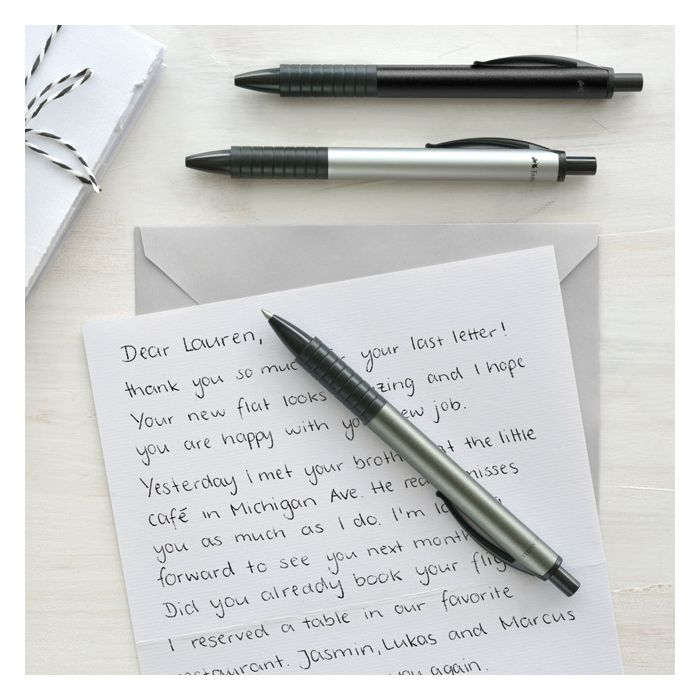 Dear Lauren,
thank you so your last letter!
Your new flat looks and I hope
you are happy with job.
Yesterday i met your the little
café in Michigan Ave. He misses
you as much as I do. I'm
forward to see you next
Did you already book your
I reserved a table in our favorite
Jasmin, Lukas and Marcus
you again.